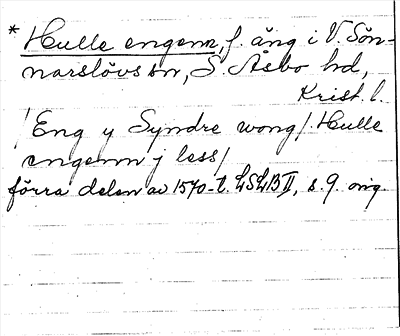 * Hulle engenn, f. äng i V. Sön-
narslövs sn, S. Åsbo hd,
Krist. l.
/Eng y Syndre wong/ Hulle
engenn j less/
förra delen av 1570-t. LSLB II, s. 9. orig.